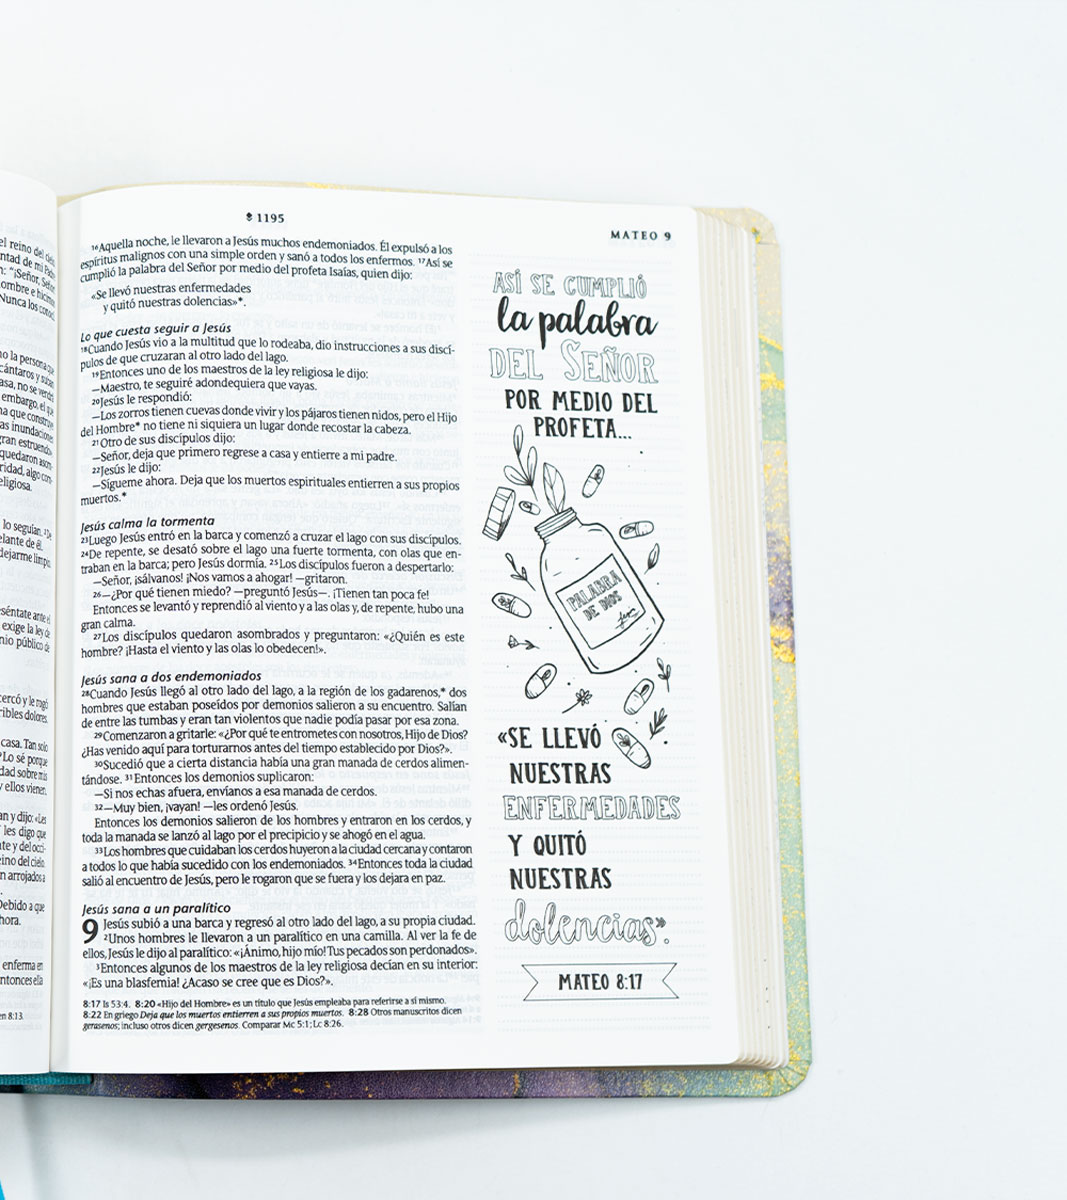 el reino del
ntad de mi Pad
n: "¡Señor, Señor
ombre e hicim
Nunca los conoc
no la persona que
cántaros y suban
asa, no se vendrá
embargo, el que
na que construye
as inundaciones
gran estruendo
quedaron asom-
ridad, algo com-
eligiosa.
lo seguían. ²De
elante de él.
dejarme limpio
eséntate ante el
exige la ley de
nio público de
cercó y le rogó
ribles dolores.
casa. Tan solo
Lo sé porque
dad sobre mis
y ellos vienen,
an y dijo: «Les
les digo que
te y del occi-
eino del cielo.
n arrojados a
Debido a que
hora.
enferma en
ntonces ella
en 8:13.
1195
MATEO 9
¹⁶Aquella noche, le llevaron a Jesús muchos endemoniados. Él expulsó a los
espíritus malignos con una simple orden y sanó a todos los enfermos. ¹⁷Así se
cumplió la palabra del Señor por medio del profeta Isaías, quien dijo:
«Se llevó nuestras enfermedades
y quitó nuestras dolencias»*.
Lo que cuesta seguir a Jesús
¹⁸Cuando Jesús vio a la multitud que lo rodeaba, dio instrucciones a sus discí-
pulos de que cruzaran al otro lado del lago.
¹⁹Entonces uno de los maestros de la ley religiosa le dijo:
—Maestro, te seguiré adondequiera que vayas.
²⁰Jesús le respondió:
—Los zorros tienen cuevas donde vivir y los pájaros tienen nidos, pero el Hijo
del Hombre* no tiene ni siquiera un lugar donde recostar la cabeza.
²¹Otro de sus discípulos dijo:
—Señor, deja que primero regrese a casa y entierre a mi padre.
²²Jesús le dijo:
—Sígueme ahora. Deja que los muertos espirituales entierren a sus propios
muertos.*
Jesús calma la tormenta
²³Luego Jesús entró en la barca y comenzó a cruzar el lago con sus discípulos.
²⁴De repente, se desató sobre el lago una fuerte tormenta, con olas que en-
traban en la barca; pero Jesús dormía. ²⁵Los discípulos fueron a despertarlo:
—Señor, ¡sálvanos! ¡Nos vamos a ahogar! —gritaron.
²⁶—¿Por qué tienen miedo? —preguntó Jesús—. ¡Tienen tan poca fe!
Entonces se levantó y reprendió al viento y a las olas y, de repente, hubo una
gran calma.
²⁷Los discípulos quedaron asombrados y preguntaron: «¿Quién es este
hombre? ¡Hasta el viento y las olas lo obedecen!».
Jesús sana a dos endemoniados
²⁸Cuando Jesús llegó al otro lado del lago, a la región de los gadarenos,* dos
hombres que estaban poseídos por demonios salieron a su encuentro. Salían
de entre las tumbas y eran tan violentos que nadie podía pasar por esa zona.
²⁹Comenzaron a gritarle: «¿Por qué te entrometes con nosotros, Hijo de Dios?
¿Has venido aquí para torturarnos antes del tiempo establecido por Dios?».
³⁰Sucedió que a cierta distancia había una gran manada de cerdos alimen-
tándose. ³¹Entonces los demonios suplicaron:
—Si nos echas afuera, envíanos a esa manada de cerdos.
³²—Muy bien, ¡vayan! —les ordenó Jesús.
Entonces los demonios salieron de los hombres y entraron en los cerdos, y
toda la manada se lanzó al lago por el precipicio y se ahogó en el agua.
³³Los hombres que cuidaban los cerdos huyeron a la ciudad cercana y contaron
a todos lo que había sucedido con los endemoniados. ³⁴Entonces toda la ciudad
salió al encuentro de Jesús, pero le rogaron que se fuera y los dejara en paz.
Jesús sana a un paralítico
9 Jesús subió a una barca y regresó al otro lado del lago, a su propia ciudad.
²Unos hombres le llevaron a un paralítico en una camilla. Al ver la fe de
ellos, Jesús le dijo al paralítico: «¡Ánimo, hijo mío! Tus pecados son perdonados».
³Entonces algunos de los maestros de la ley religiosa decían en su interior:
«¡Es una blasfemia! ¿Acaso se cree que es Dios?».
8:17 Is 53:4. 8:20 «Hijo del Hombre» es un título que Jesús empleaba para referirse a sí mismo.
8:22 En griego Deja que los muertos entierren a sus propios muertos. 8:28 Otros manuscritos dicen
gerasenos; incluso otros dicen gergesenos. Comparar Mc 5:1; Lc 8:26.
ASÍ SE CUMPLIÓ
la palabra
DEL SEÑOR
POR MEDIO DEL
PROFETA...
PALABRA
DE DIOS
«SE LLEVÓ
NUESTRAS
ENFERMEDADES
Y QUITÓ
NUESTRAS
dolencias».
MATEO 8:17